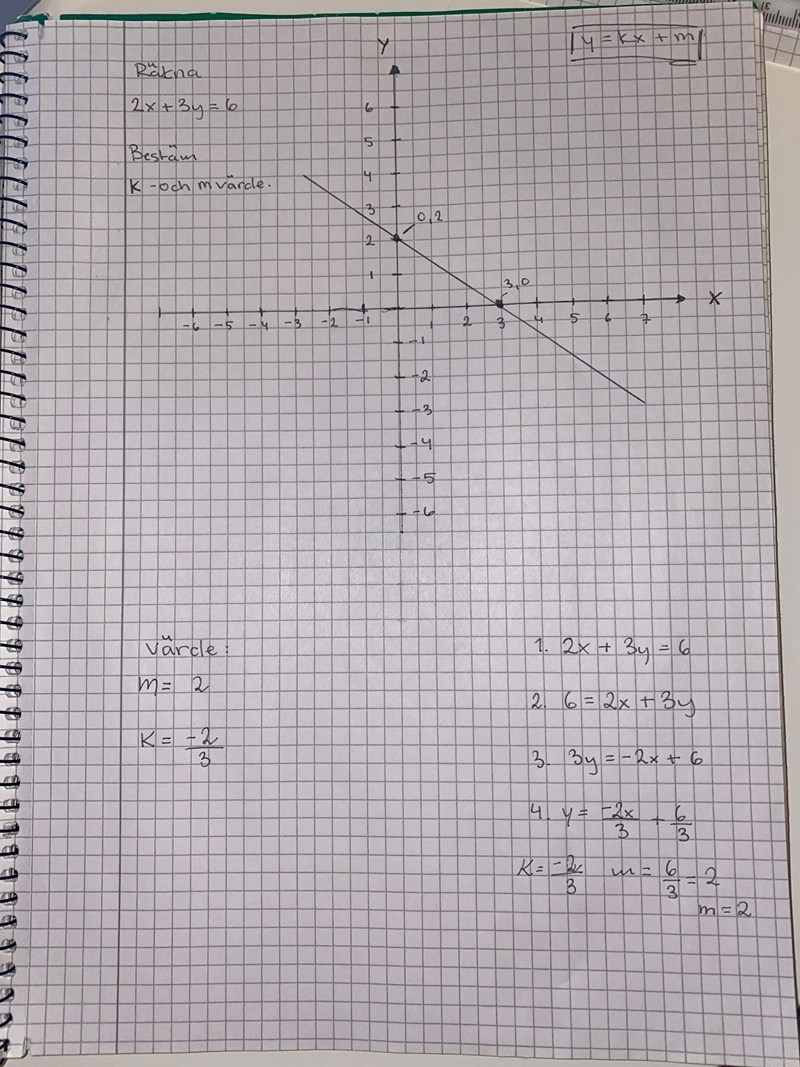 y = kx + m
Räkna
2x + 3y = 6
Bestäm
K -och m värde.
Y
6
5
4
3
2
1
0,2
3,0
X
-6 -5 -4 -3 -2 -1 1 2 3 4 5 6 7
-1
-2
-3
-4
-5
-6
värde:
m = 2
K = -2/3
1. 2x + 3y = 6
2. 6 = 2x + 3y
3. 3y = -2x + 6
4. y = -2x/3 + 6/3
K = -2x/3 m = 6/3 = 2
m = 2